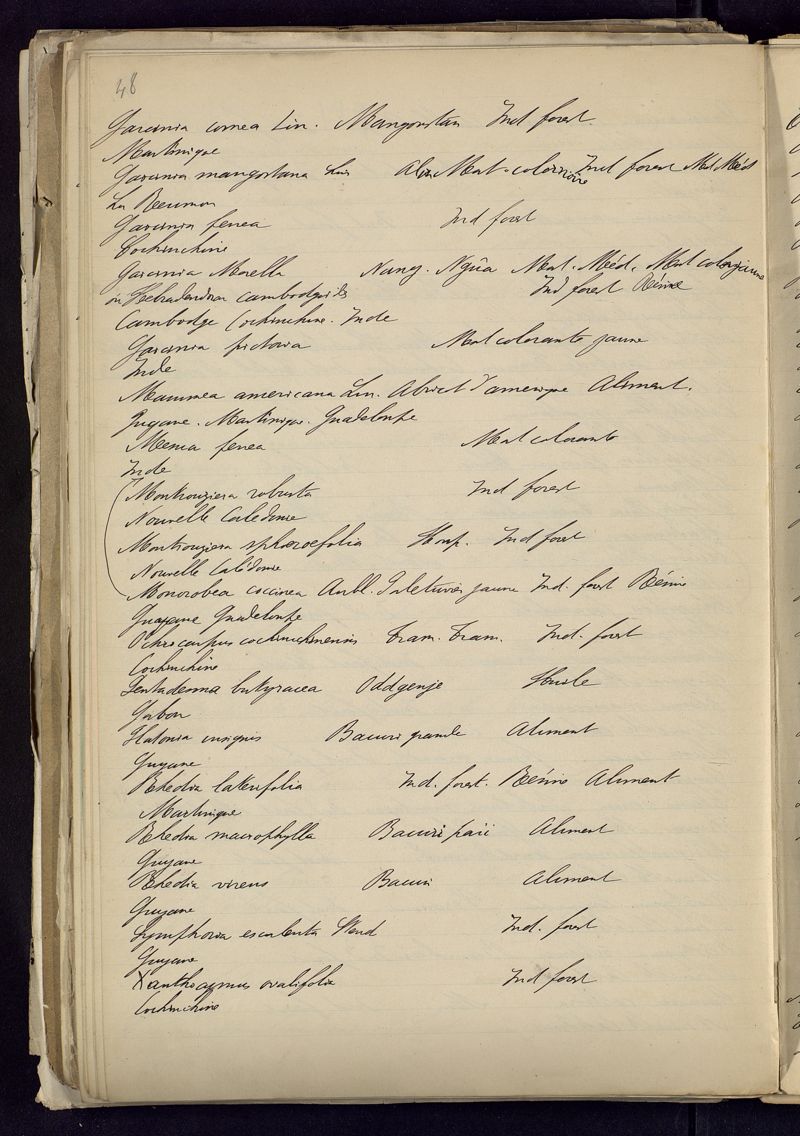 48
Garcinia cornea Lin. Mangoustan Ind forest.
Martinique
Garcinia mangostana Lin Alim Mat. colorante Ind forest Mat Méd
La Réunion
Garcinia ferrea Ind forest
Cochinchine
Garcinia Morella Nang. Ngùa Mat. Méd. Mat colorjaune
ou Hebradendron cambodgiensis Ind forest Résine
Cambodge Cochinchine. Inde
Garcinia pictoria Mat colorante jaune
Inde
Mammea americana Lin. Abricot d'amerique Aliment.
Guyane. Martinique. Guadeloupe
Mesua ferrea Mat colorante
Inde
Montrouziera robusta Ind forest
Nouvelle Calédonie
Montrouziera sphaeroefolia Houp. Ind forest
Nouvelle Calédonie
Moronobea coccinea Aubl. Paletuvier jaune Ind. forest Résine
Guayane Guadeloupe
Ochrocarpus cochinchinensis Tram. Tram. Ind. forest
Cochinchine
Pentadesma butyracea Oddgenje Huile
Gabon
Platonia insignis Bacuri grande Aliment
Guyane
Rhedia laterifolia Ind. forest. Résine Aliment
Martinique
Rhedia macrophylla Bacuri parii Aliment
Guyane
Rhedia virens Bacuri Aliment
Guyane
Symphonia esculenta Steud Ind. forest
Guyane
Xanthocymus ovalifolia Ind forest
Cochinchine